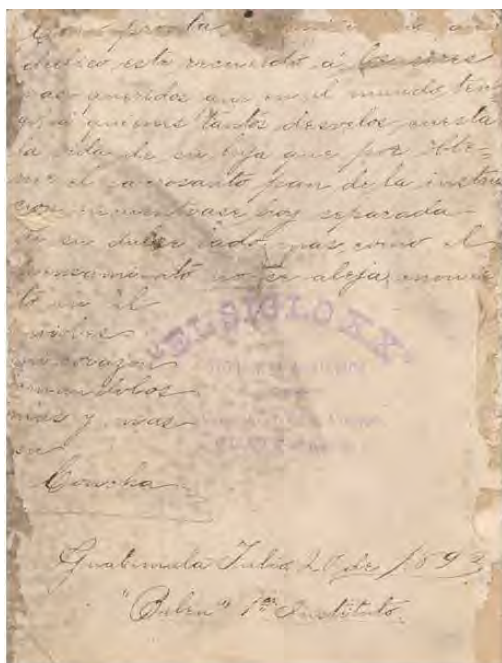 Como pronta
dedico este recuerdo á los seres
mas queridos que en el mundo ten
go, á quienes tantos desvelos cuesta
la vida de su hija que por obte=
ner el sacrosanto pan de la instru
cion encuentrase hoy separada
de su dulce lado, mas como el
pensamiento no se aleja,
to en él
vivires
mi corazon
amandolos
mas y mas
su
Concha
"EL SIGLO XX"
Guatemala Julio 20 de 1893
"Belen" 1er Instituto.